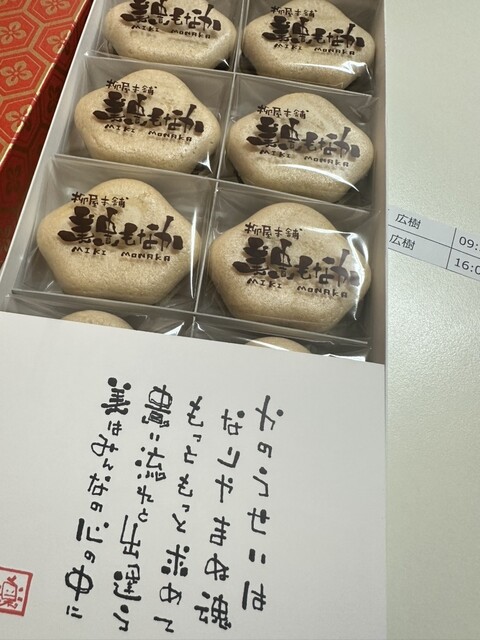 柳屋本舗
美貴もなか
MIKI MONAKA
柳屋本舗
美貴もなか
MIKI MONAKA
柳屋本舗
美貴もなか
MIKI MONAKA
柳屋本舗
美貴もなか
MIKI MONAKA
柳屋本舗
美貴もなか
MIKI MONAKA
広樹 09:
広樹 16:0
かのうせいは
なりやまぬ魂
もっともっと求めて
貴い流れと出逢う
美はみんなの心の中に